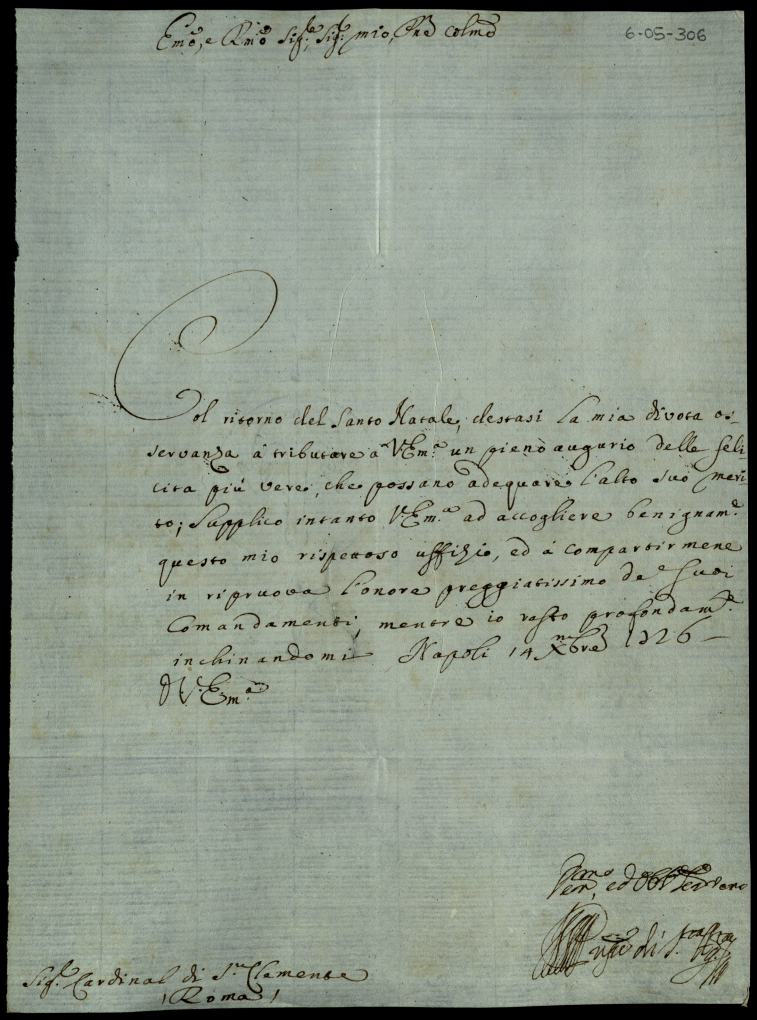 6-05-306
Emo, e Rmo Sigre, Sigr mio, Pne Colmo
Col ritorno del Santo Natale, destasi la mia divota os-
servanza à tributare a V. Em.a un pieno augurio delle feli-
cità più vere, che possano adequare l'alto suo meri-
to; Supplico intanto V. Em.a ad accogliere benignam.te
questo mio rispettoso uffizio, ed à compartirmene
in ripruova l'onore preggiatissimo de' suoi
Comandamenti, mentre io resto profondam.te
inchinandomi Napoli 14 Xmbre 1726
D V. Em.a
ed
di
Sig.re Cardinal di S.n Clemente
(Roma)